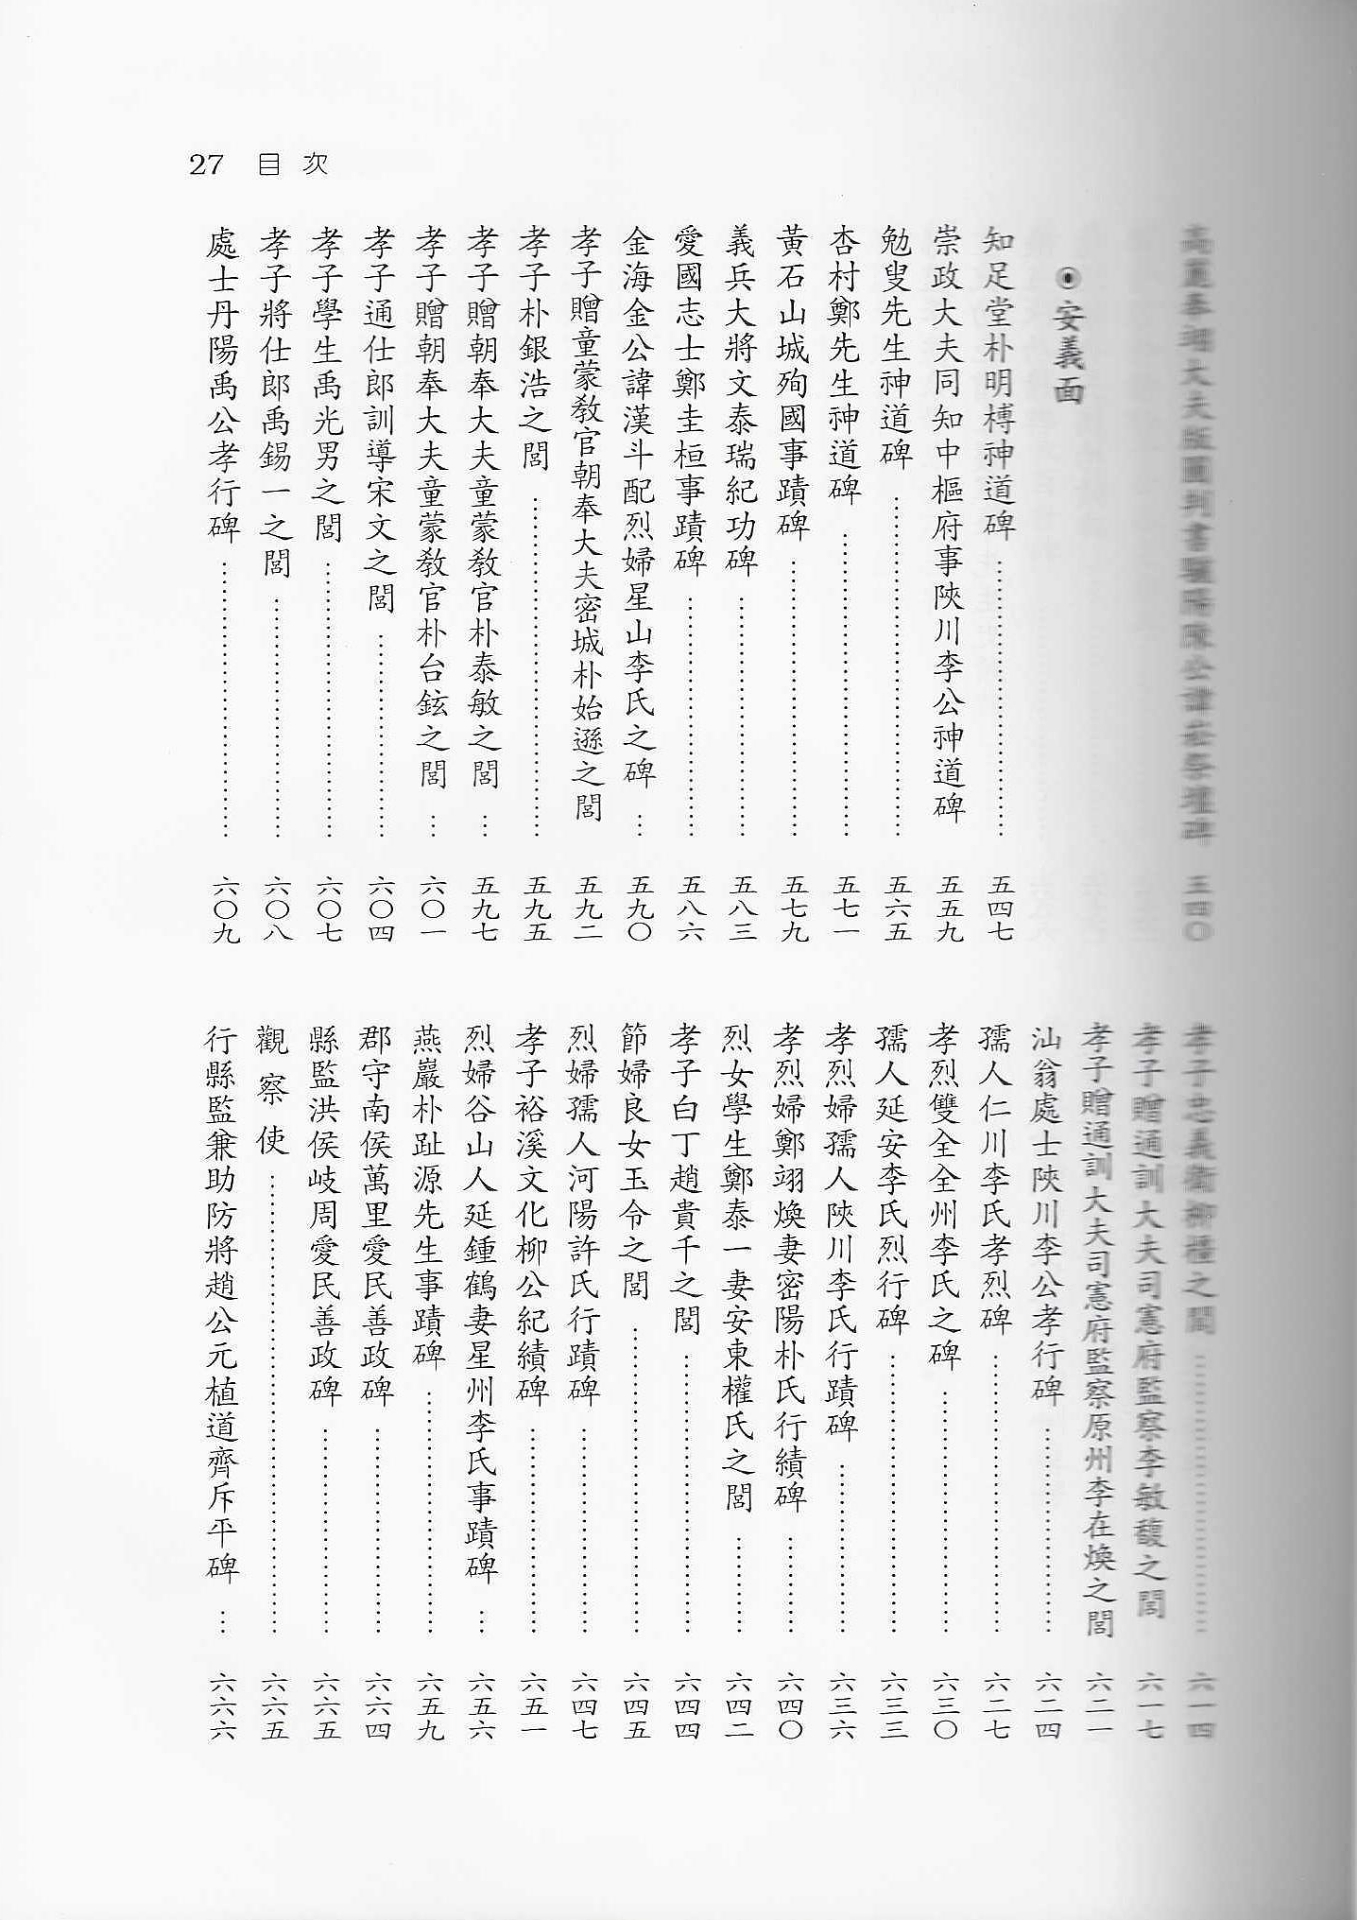 27 目次
大夫版圖判書驪陽陳公諱 祭壇碑 五四〇
◉安義面
知足堂朴明榑神道碑…………五四七
崇政大夫同知中樞府事陜川李公神道碑 五五九
勉叟先生神道碑…………五六五
杏村鄭先生神道碑…………五七一
黃石山城殉國事蹟碑…………五七九
義兵大將文泰瑞紀功碑…………五八三
愛國志士鄭圭桓事蹟碑…………五八六
金海金公諱漢斗配烈婦星山李氏之碑…五九〇
孝子贈童蒙敎官朝奉大夫密城朴始遜之閭 五九二
孝子朴銀浩之閭…………五九五
孝子贈朝奉大夫童蒙敎官朴泰敏之閭…五九七
孝子贈朝奉大夫童蒙敎官朴台鉉之閭…六〇一
孝子通仕郎訓導宋文之閭…………六〇四
孝子學生禹光男之閭…………六〇七
孝子將仕郎禹錫一之閭…………六〇八
處士丹陽禹公孝行碑…………六〇九
孝子忠義衛柳橿之閭…………六一四
孝子贈通訓大夫司憲府監察李敏馥之閭 六一七
孝子贈通訓大夫司憲府監察原州李在煥之閭 六二一
汕翁處士陜川李公孝行碑…………六二四
孺人仁川李氏孝烈碑…………六二七
孝烈雙全全州李氏之碑…………六三〇
孺人延安李氏烈行碑…………六三三
孝烈婦孺人陜川李氏行蹟碑…………六三六
孝烈婦鄭翊煥妻密陽朴氏行績碑………六四〇
烈女學生鄭泰一妻安東權氏之閭………六四二
孝子白丁趙貴千之閭…………六四四
節婦良女玉今之閭…………六四五
烈婦孺人河陽許氏行蹟碑…………六四七
孝子裕溪文化柳公紀績碑…………六五一
烈婦谷山人延鍾鶴妻星州李氏事蹟碑…六五六
燕巖朴趾源先生事蹟碑…………六五九
郡守南侯萬里愛民善政碑…………六六四
縣監洪侯岐周愛民善政碑…………六六五
觀察使…………六六五
行縣監兼助防將趙公元植道齊斥平碑…六六六